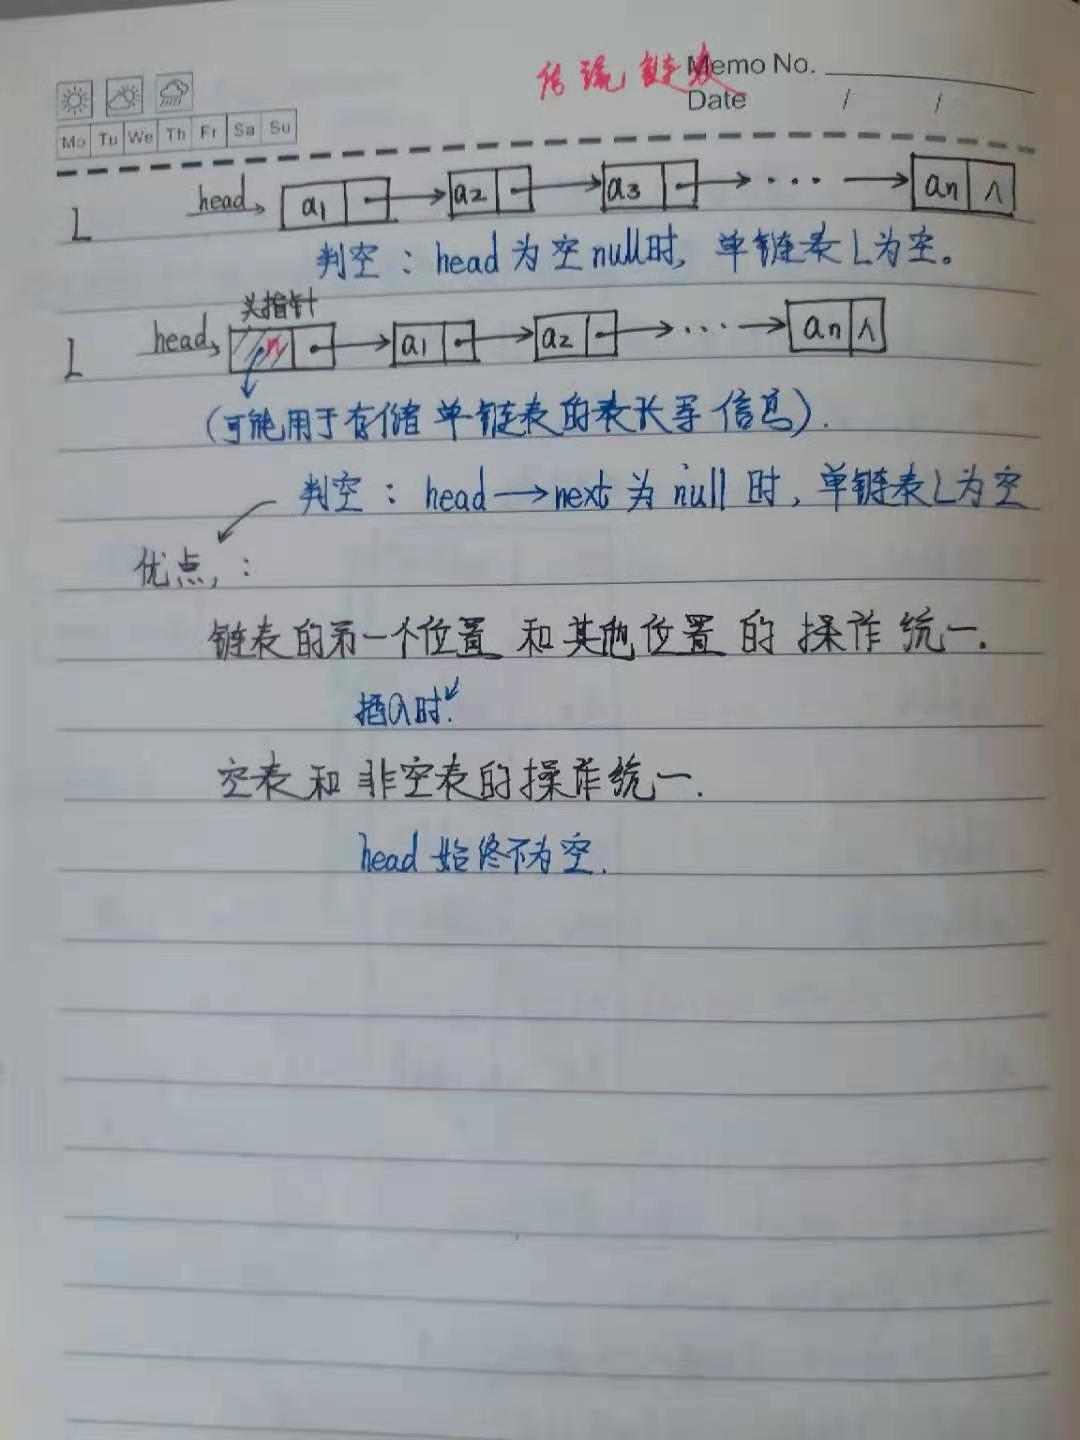 传统链表
Memo No.
Date / /
Mo Tu We Th Fr Sa Su
L head a1 a2 a3 ··· an ∧
判空：head 为空null时，单链表L为空。
头指针
L head n a1 a2 ··· an ∧
(可能用于存储单链表的表长等信息).
判空：head→next 为 null 时，单链表L为空
优点：
链表的第一个位置 和其他位置 的 操作 统一.
插入时.
空表和非空表的操作统一.
head 始终不为空.